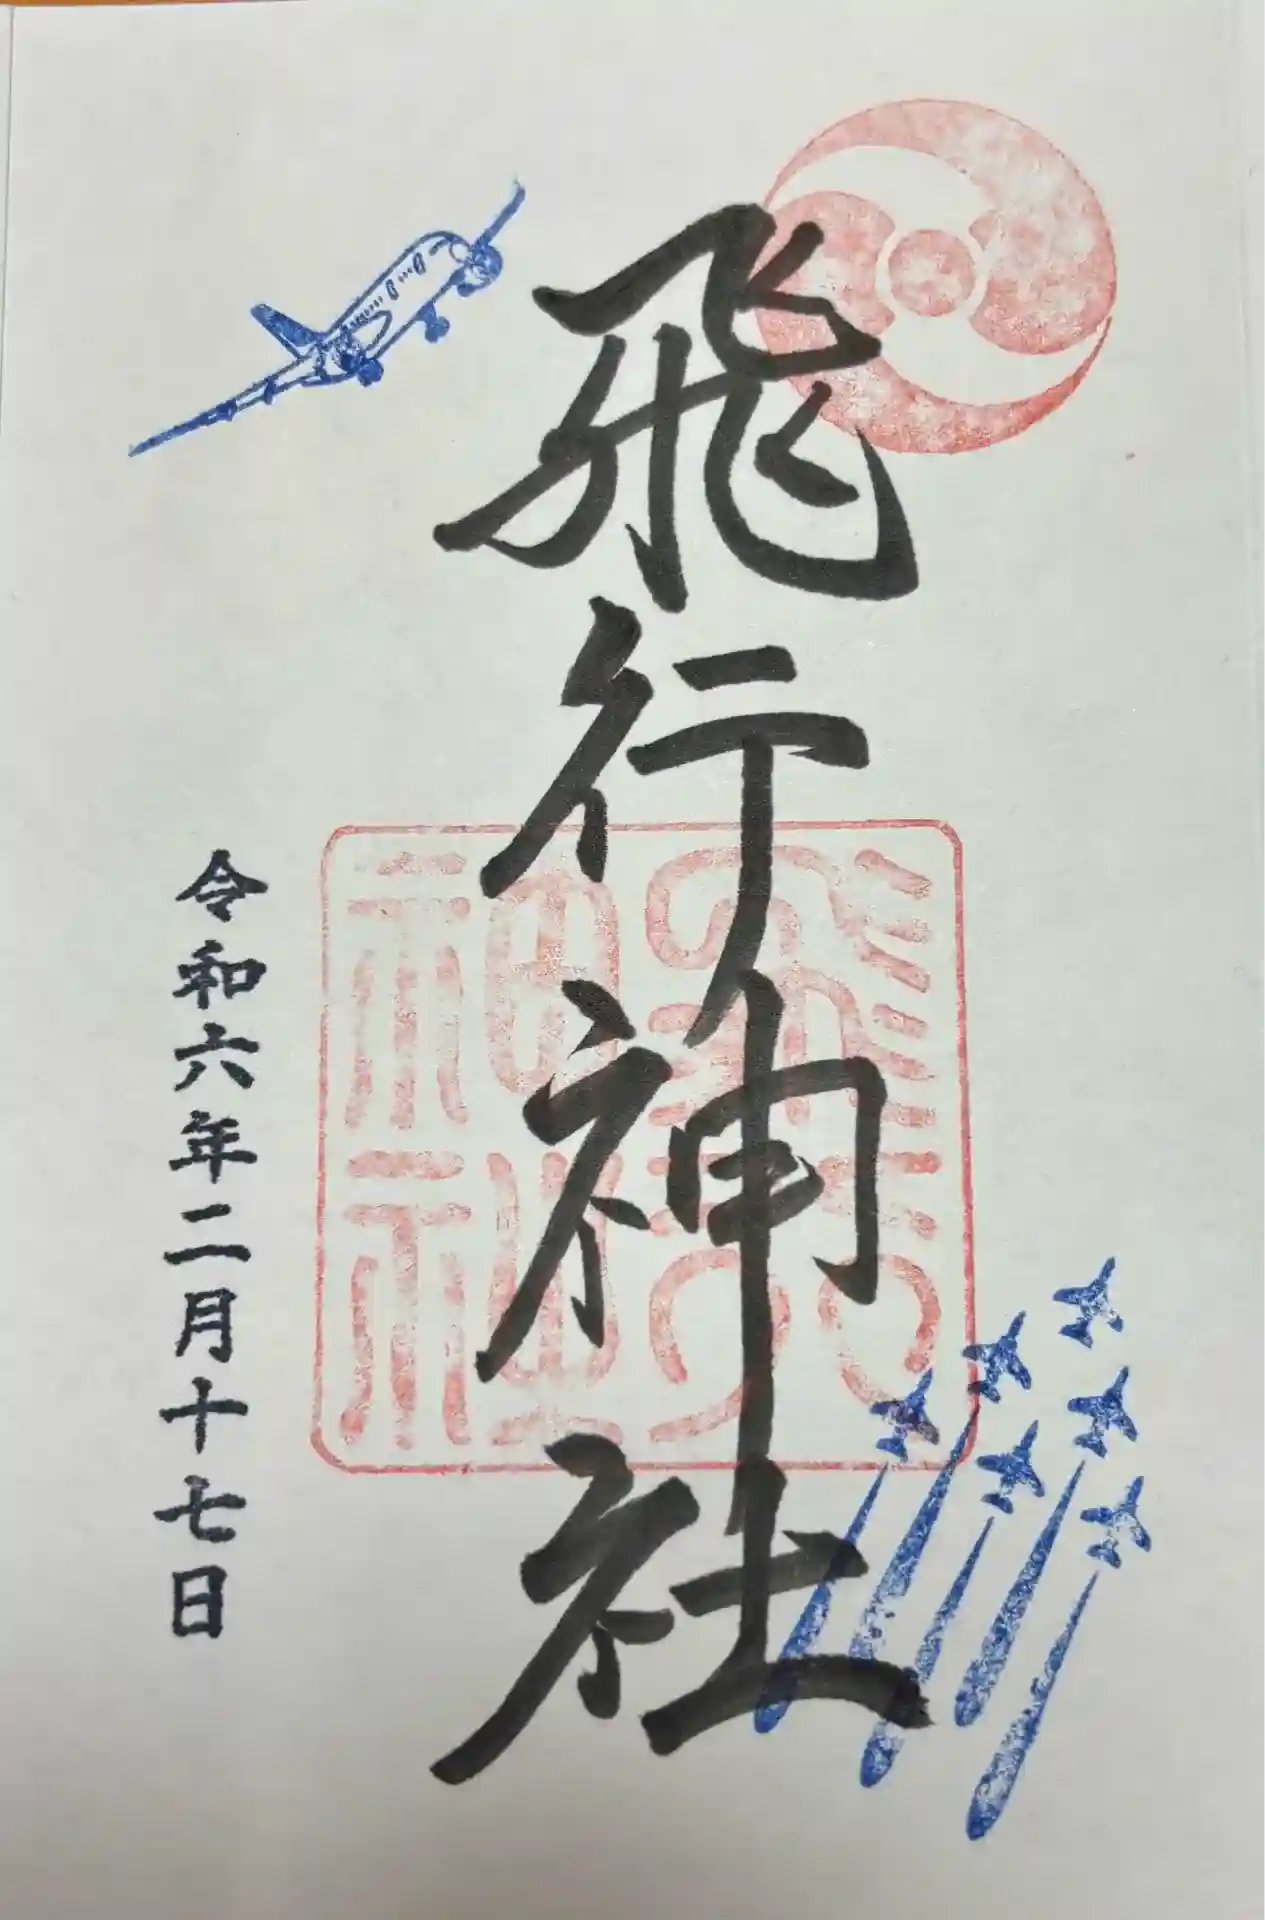 飛行神社
令和六年二月十七日
飛行
神社